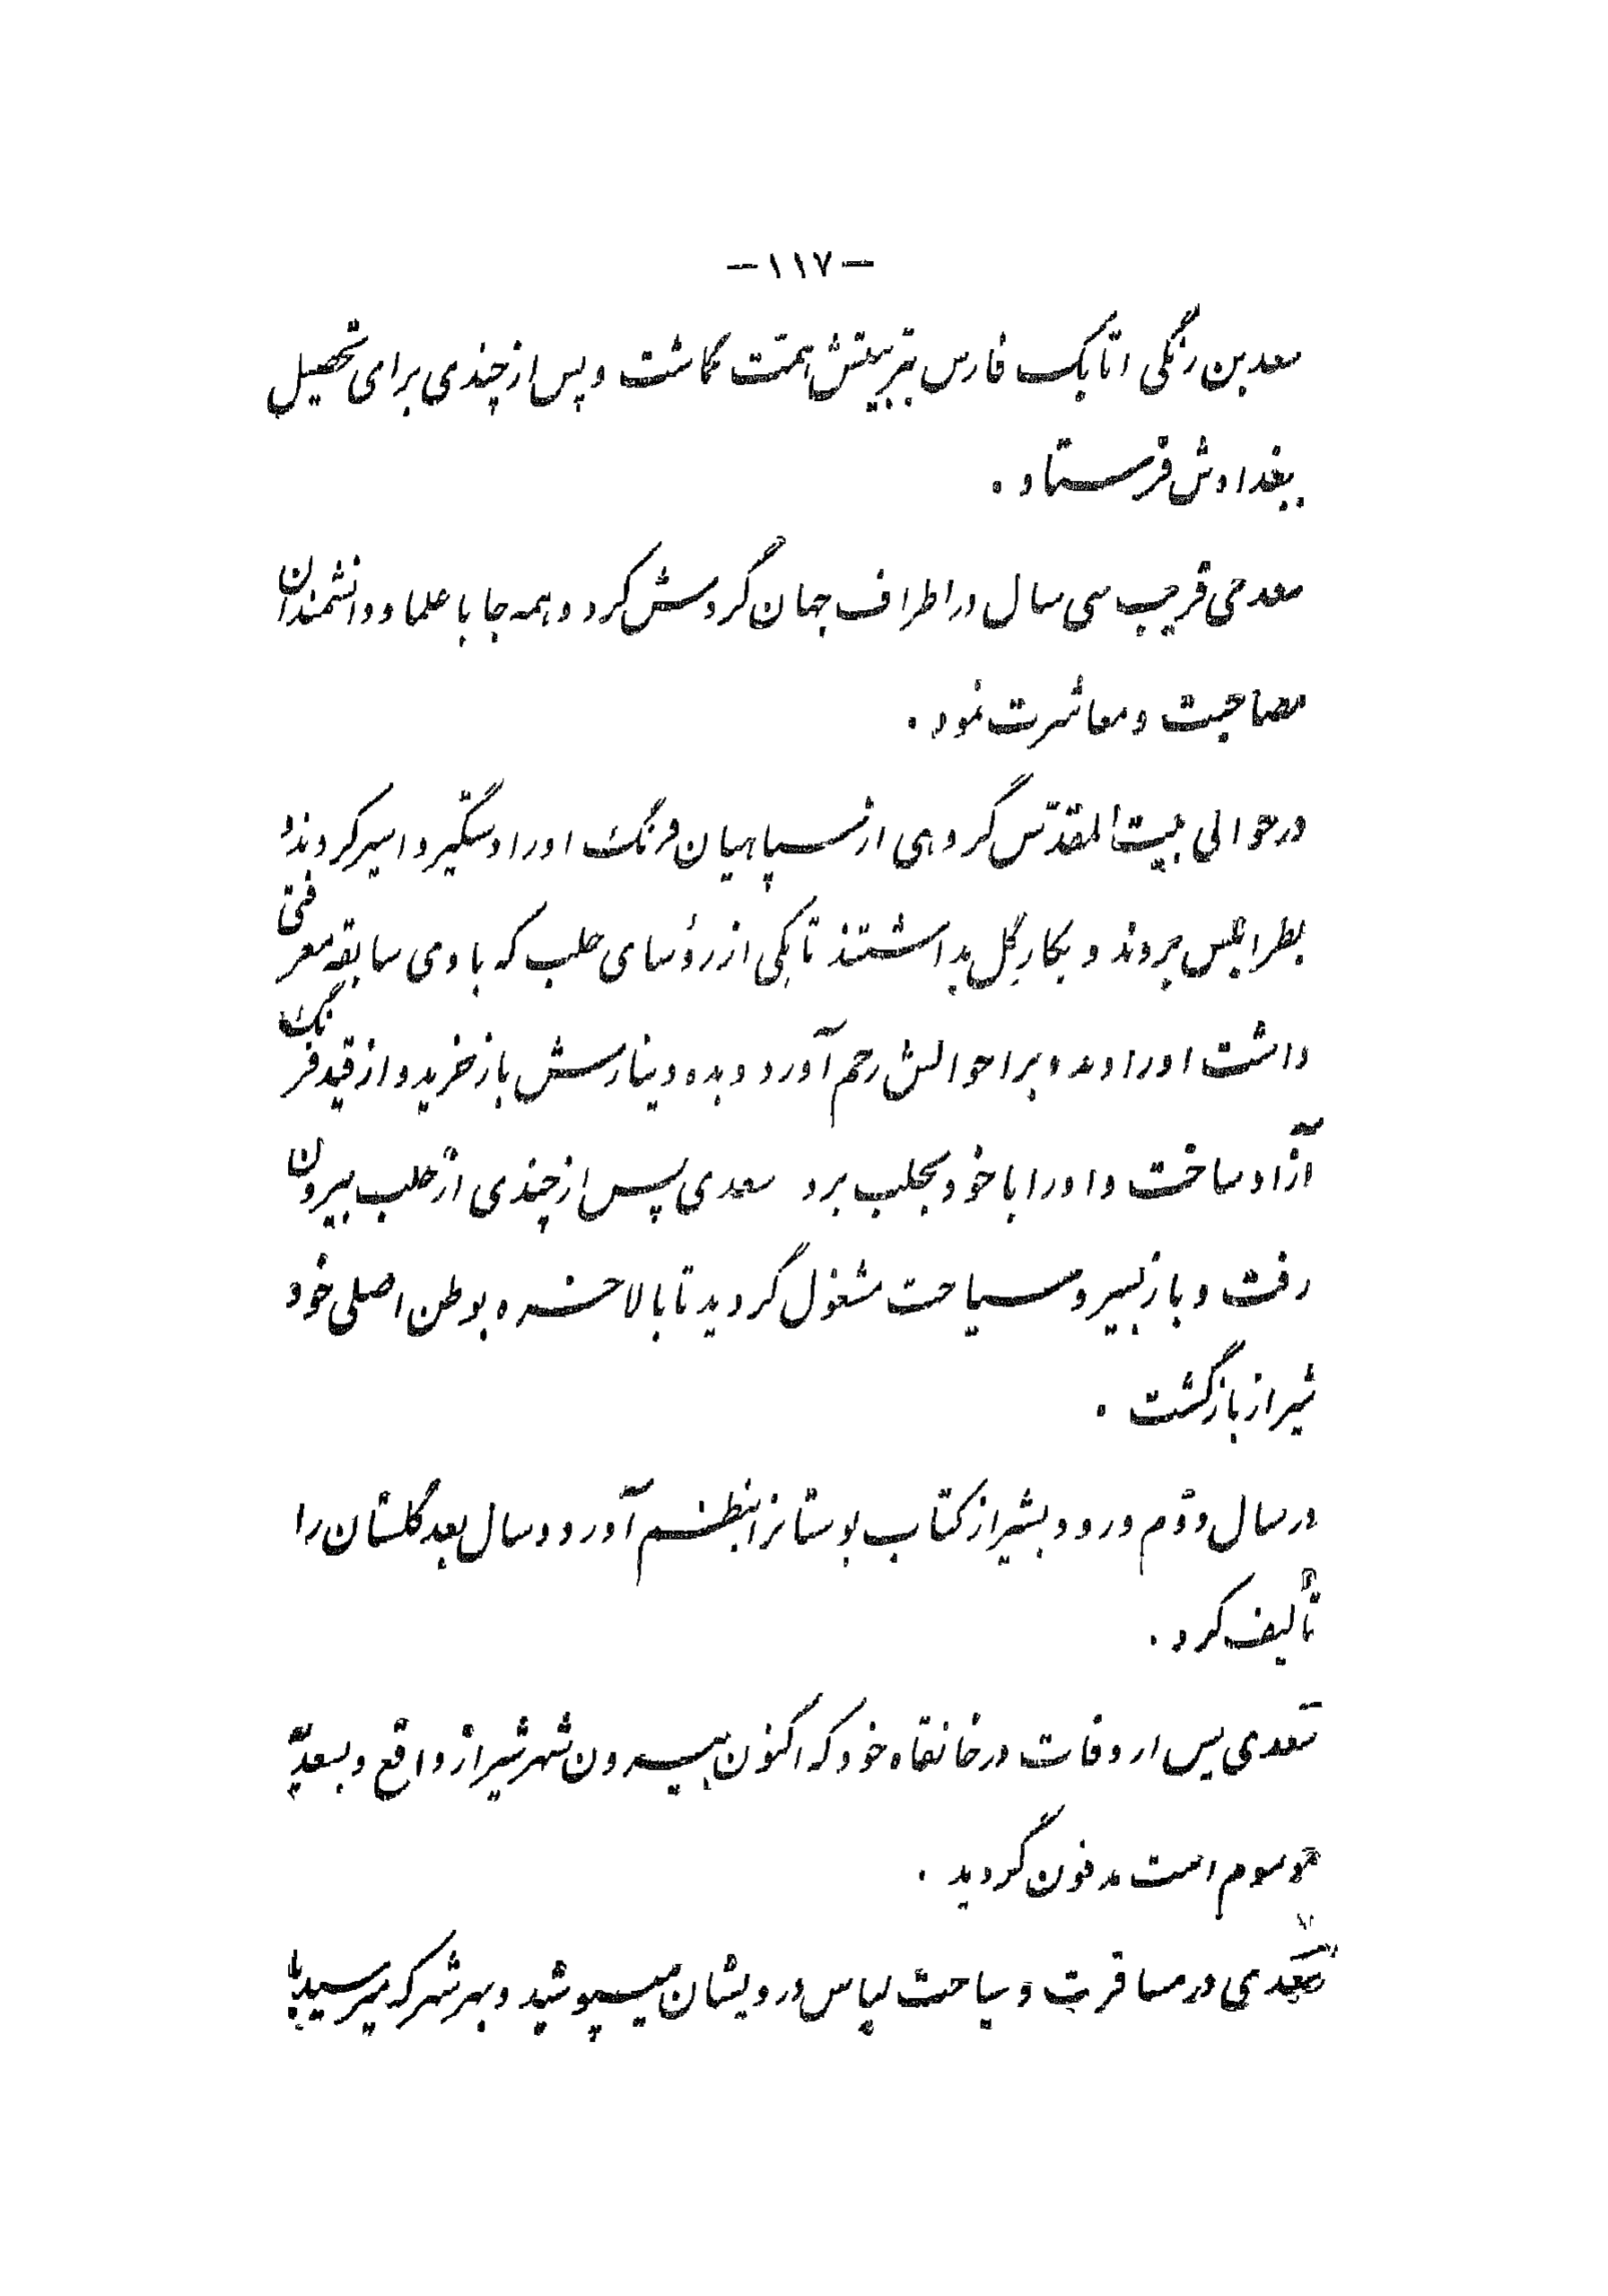 —۱۱۷—
سعد بن زنگی اتابک فارس بتربیتش همّت گماشت و پس از چندی برای تحصیل
ببغدادش فرستاد .
سعدی قریب سی سال در اطراف جهان گردش کرد و همه جا با علما و دانشمندان
مصاحبت و معاشرت نمود .
در حوالی بیت المقدّس گروهی از سپاهیان فرنگ او را دستگیر و اسیر کردند و
بطرابلس بردند و بکار گِل بداشتند تا یکی از رؤسای حلب که با وی سابقه معرفتی
داشت او را دید و بر احوالش رحم آورد و بده دینارش باز خرید و از قید فرنگ
آزاد ساخت و او را با خود بحلب برد سعدی پس از چندی از حلب بیرون
رفت و باز بسیر و سیاحت مشغول گردید تا بالاخره بوطن اصلی خود
شیراز بازگشت .
در سال دوّم ورود بشیراز کتاب بوستانرا بنظم آورد و دو سال بعد گلستان را
تألیف کرد .
سعدی پس از وفات در خانقاه خود که اکنون بیرون شهر شیراز واقع و بسعدیّه
موسوم است مدفون گردید .
سعدی در مسافرت و سیاحت لباس درویشان میپوشید و بهر شهر که میرسید با